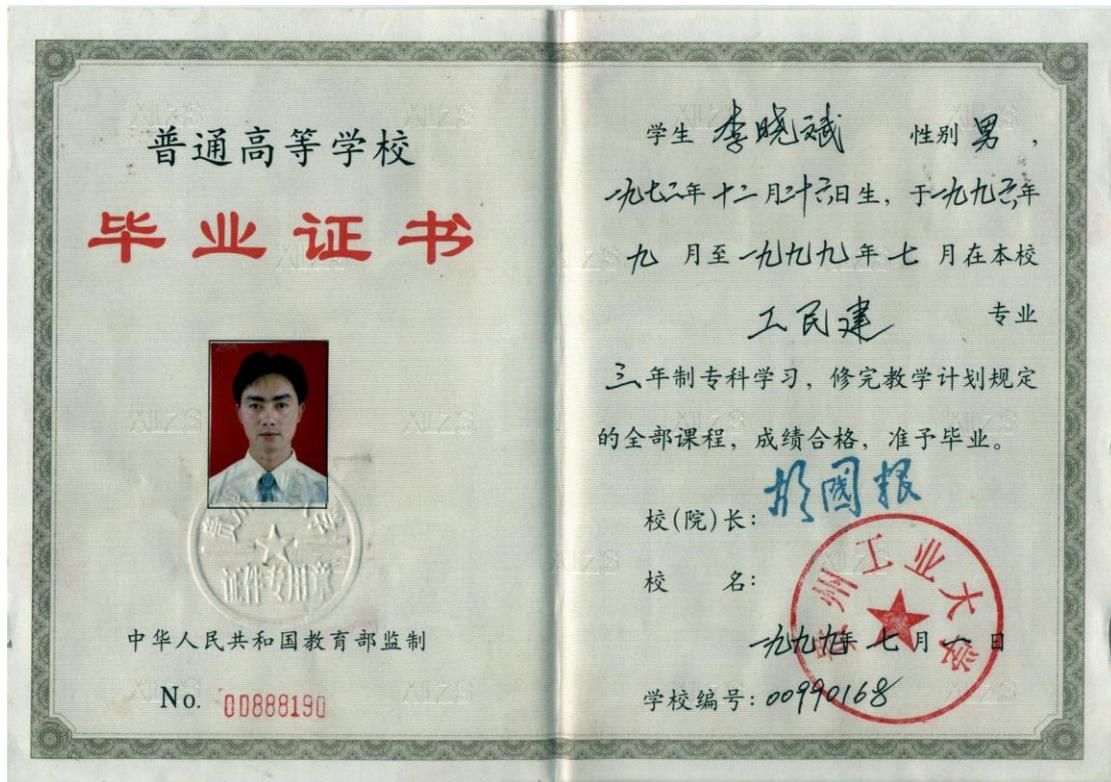 普通高等学校
毕业证书
证件专用章
中华人民共和国教育部监制
No. 00888190
学生 李晓斌 性别 男，
一九七二年十二月二十六日生，于一九九六年
九月至一九九九年七月在本校
工民建 专业
三年制专科学习，修完教学计划规定
的全部课程，成绩合格，准予毕业。
校(院)长：
校 名：
贵州工业大学
一九九九年七月一日
学校编号：00990168